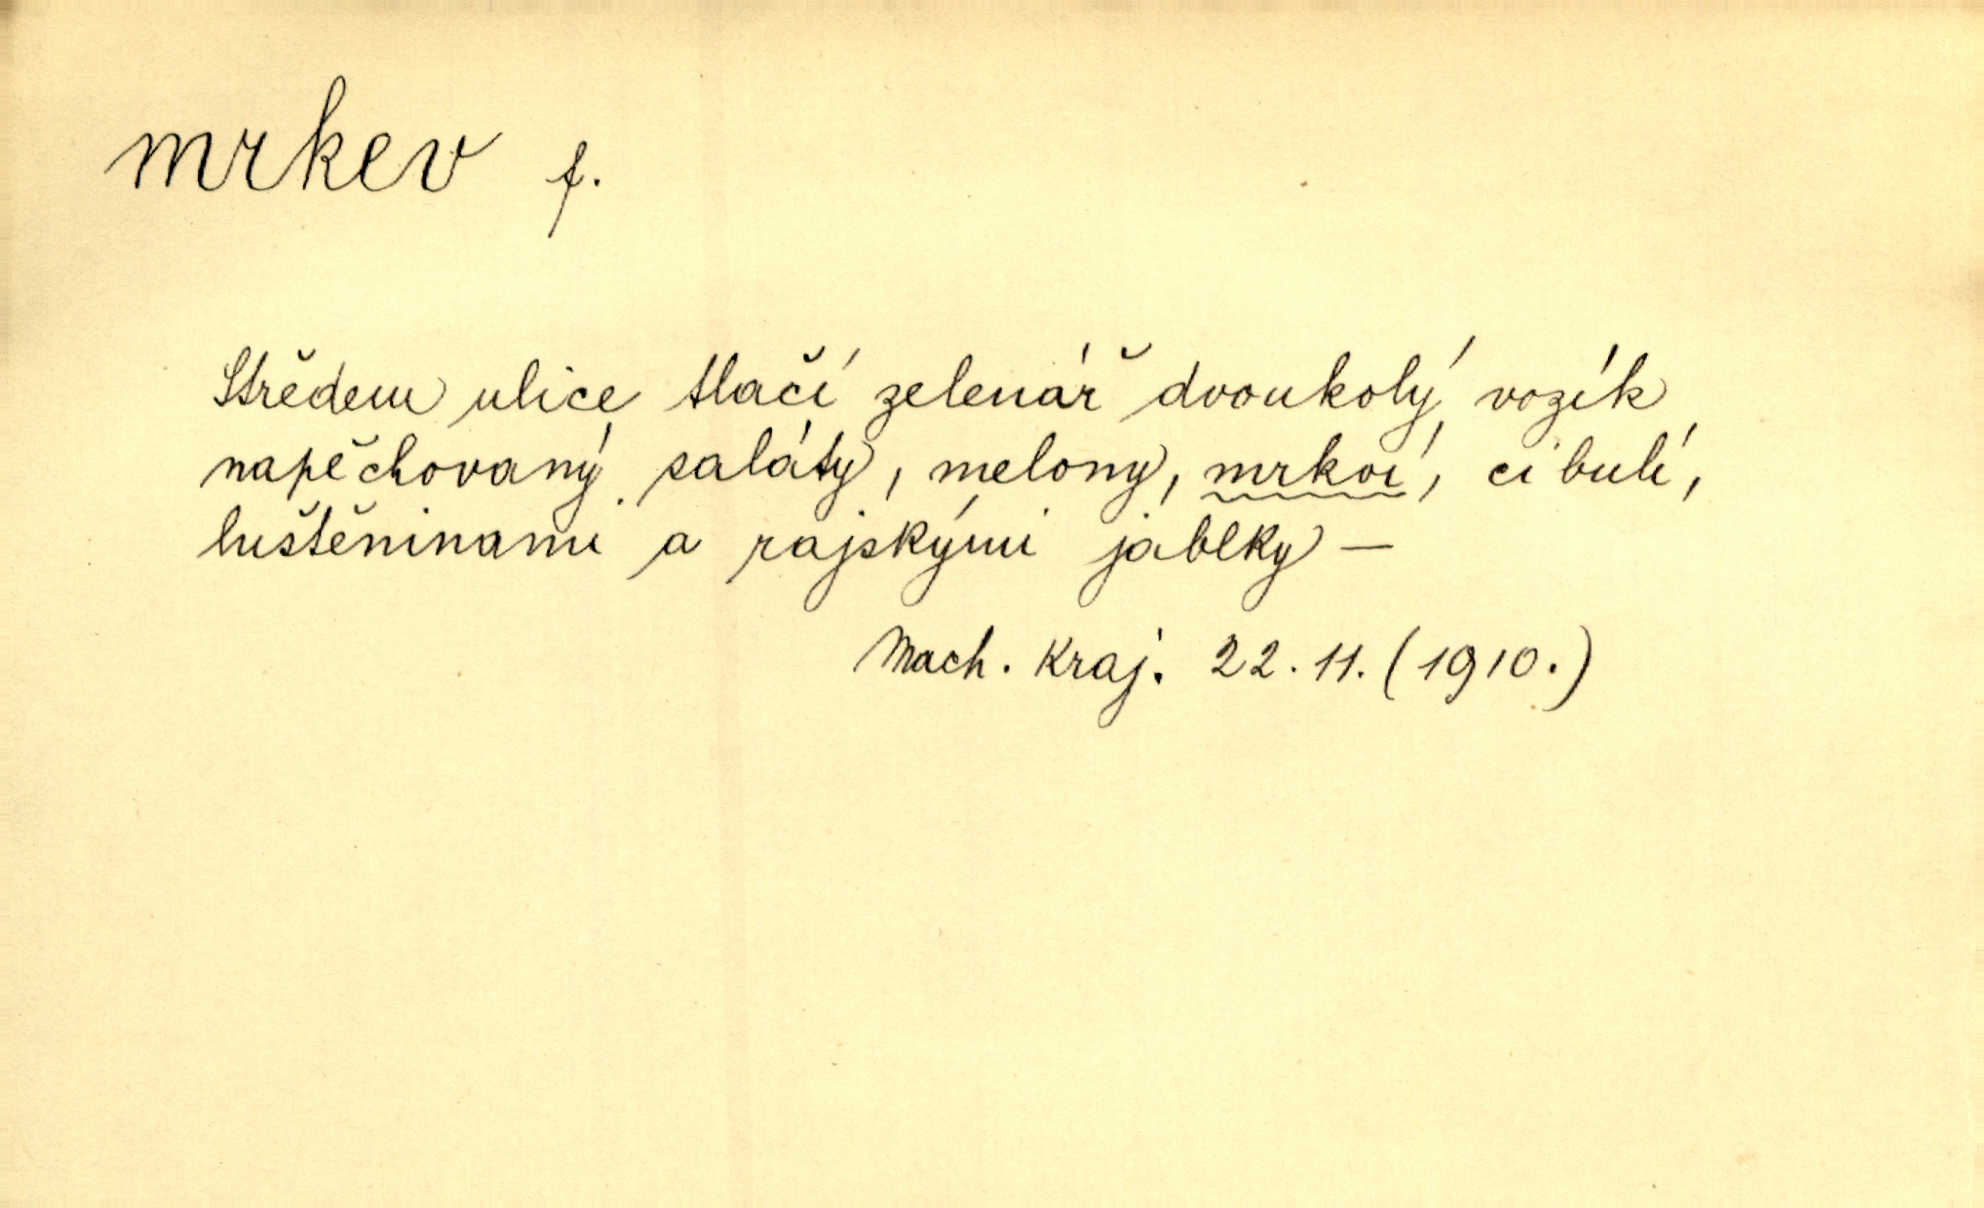 mrkev f.
Středem ulice tlačí zelenář dvoukolý vozík
napěchovaný saláty, melony, mrkví, cibulí,
luštěninami a rajskými jablky —
Mach. Kraj. 22. 11. (1910.)